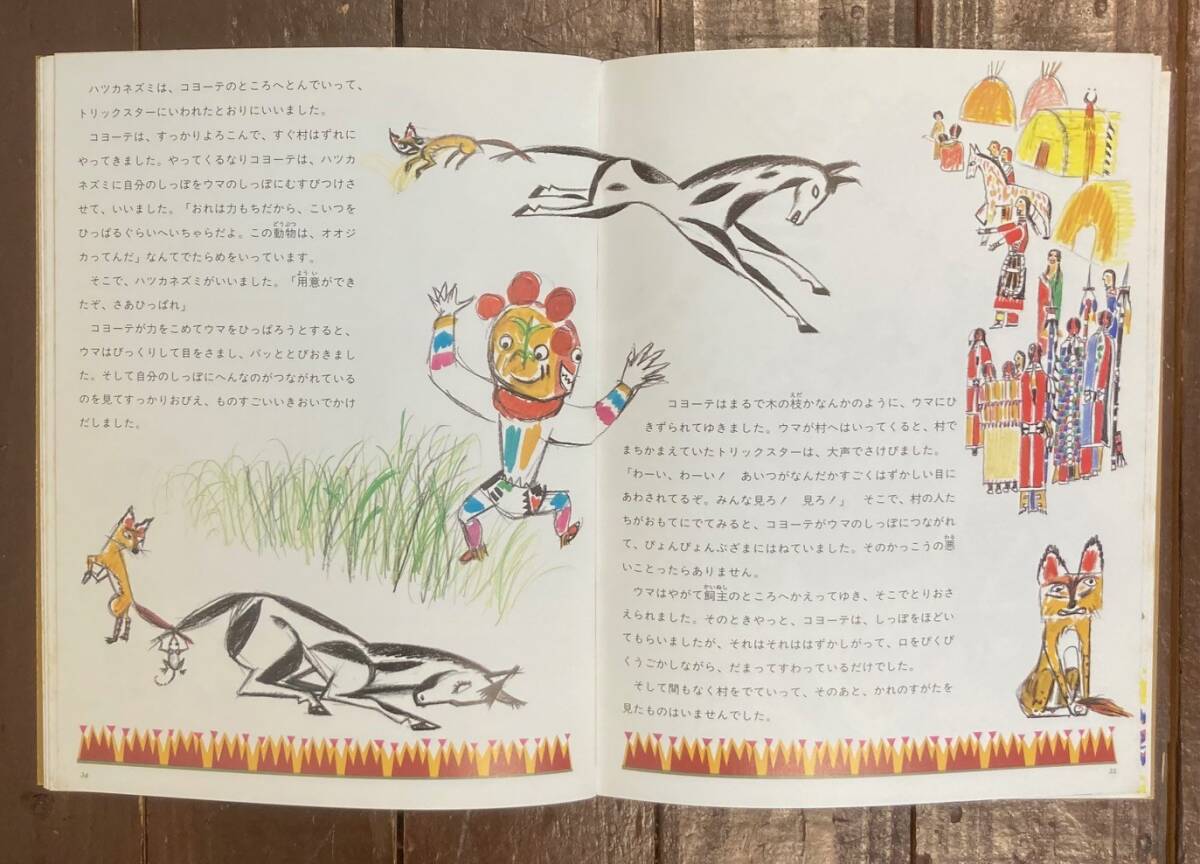 ハツカネズミは、コヨーテのところへとんでいって、
トリックスターにいわれたとおりにいいました。
コヨーテは、すっかりよろこんで、すぐ村はずれに
やってきました。やってくるなりコヨーテは、ハツカ
ネズミに自分のしっぽをウマのしっぽにむすびつけさ
せて、いいました。「おれは力もちだから、こいつを
ひっぱるぐらいへいちゃらだよ。この動物は、オオジ
カってんだ」なんてでたらめをいっています。
そこで、ハツカネズミがいいました。「用意ができ
たぞ、さあひっぱれ」
コヨーテが力をこめてウマをひっぱろうとすると、
ウマはびっくりして目をさまし、パッととびおきまし
た。そして自分のしっぽにへんなのがつながれている
のを見てすっかりおびえ、ものすごいいきおいでかけ
だしました。
34
コヨーテはまるで木の枝かなんかのように、ウマにひ
きずられてゆきました。ウマが村へはいってくると、村で
まちかまえていたトリックスターは、大声でさけびました。
「わーい、わーい！　あいつがなんだかすごくはずかしい目に
あわされてるぞ。みんな見ろ！　見ろ！」　そこで、村の人た
ちがおもてにでてみると、コヨーテがウマのしっぽにつながれ
て、ぴょんぴょんぶざまにはねていました。そのかっこうの悪
いことったらありません。
ウマはやがて飼主のところへかえってゆき、そこでとりおさ
えられました。そのときやっと、コヨーテは、しっぽをほどい
てもらいましたが、それはそれははずかしがって、口をぴくぴ
くうごかしながら、だまってすわっているだけでした。
そして間もなく村をでていって、そのあと、かれのすがたを
見たものはいませんでした。
35